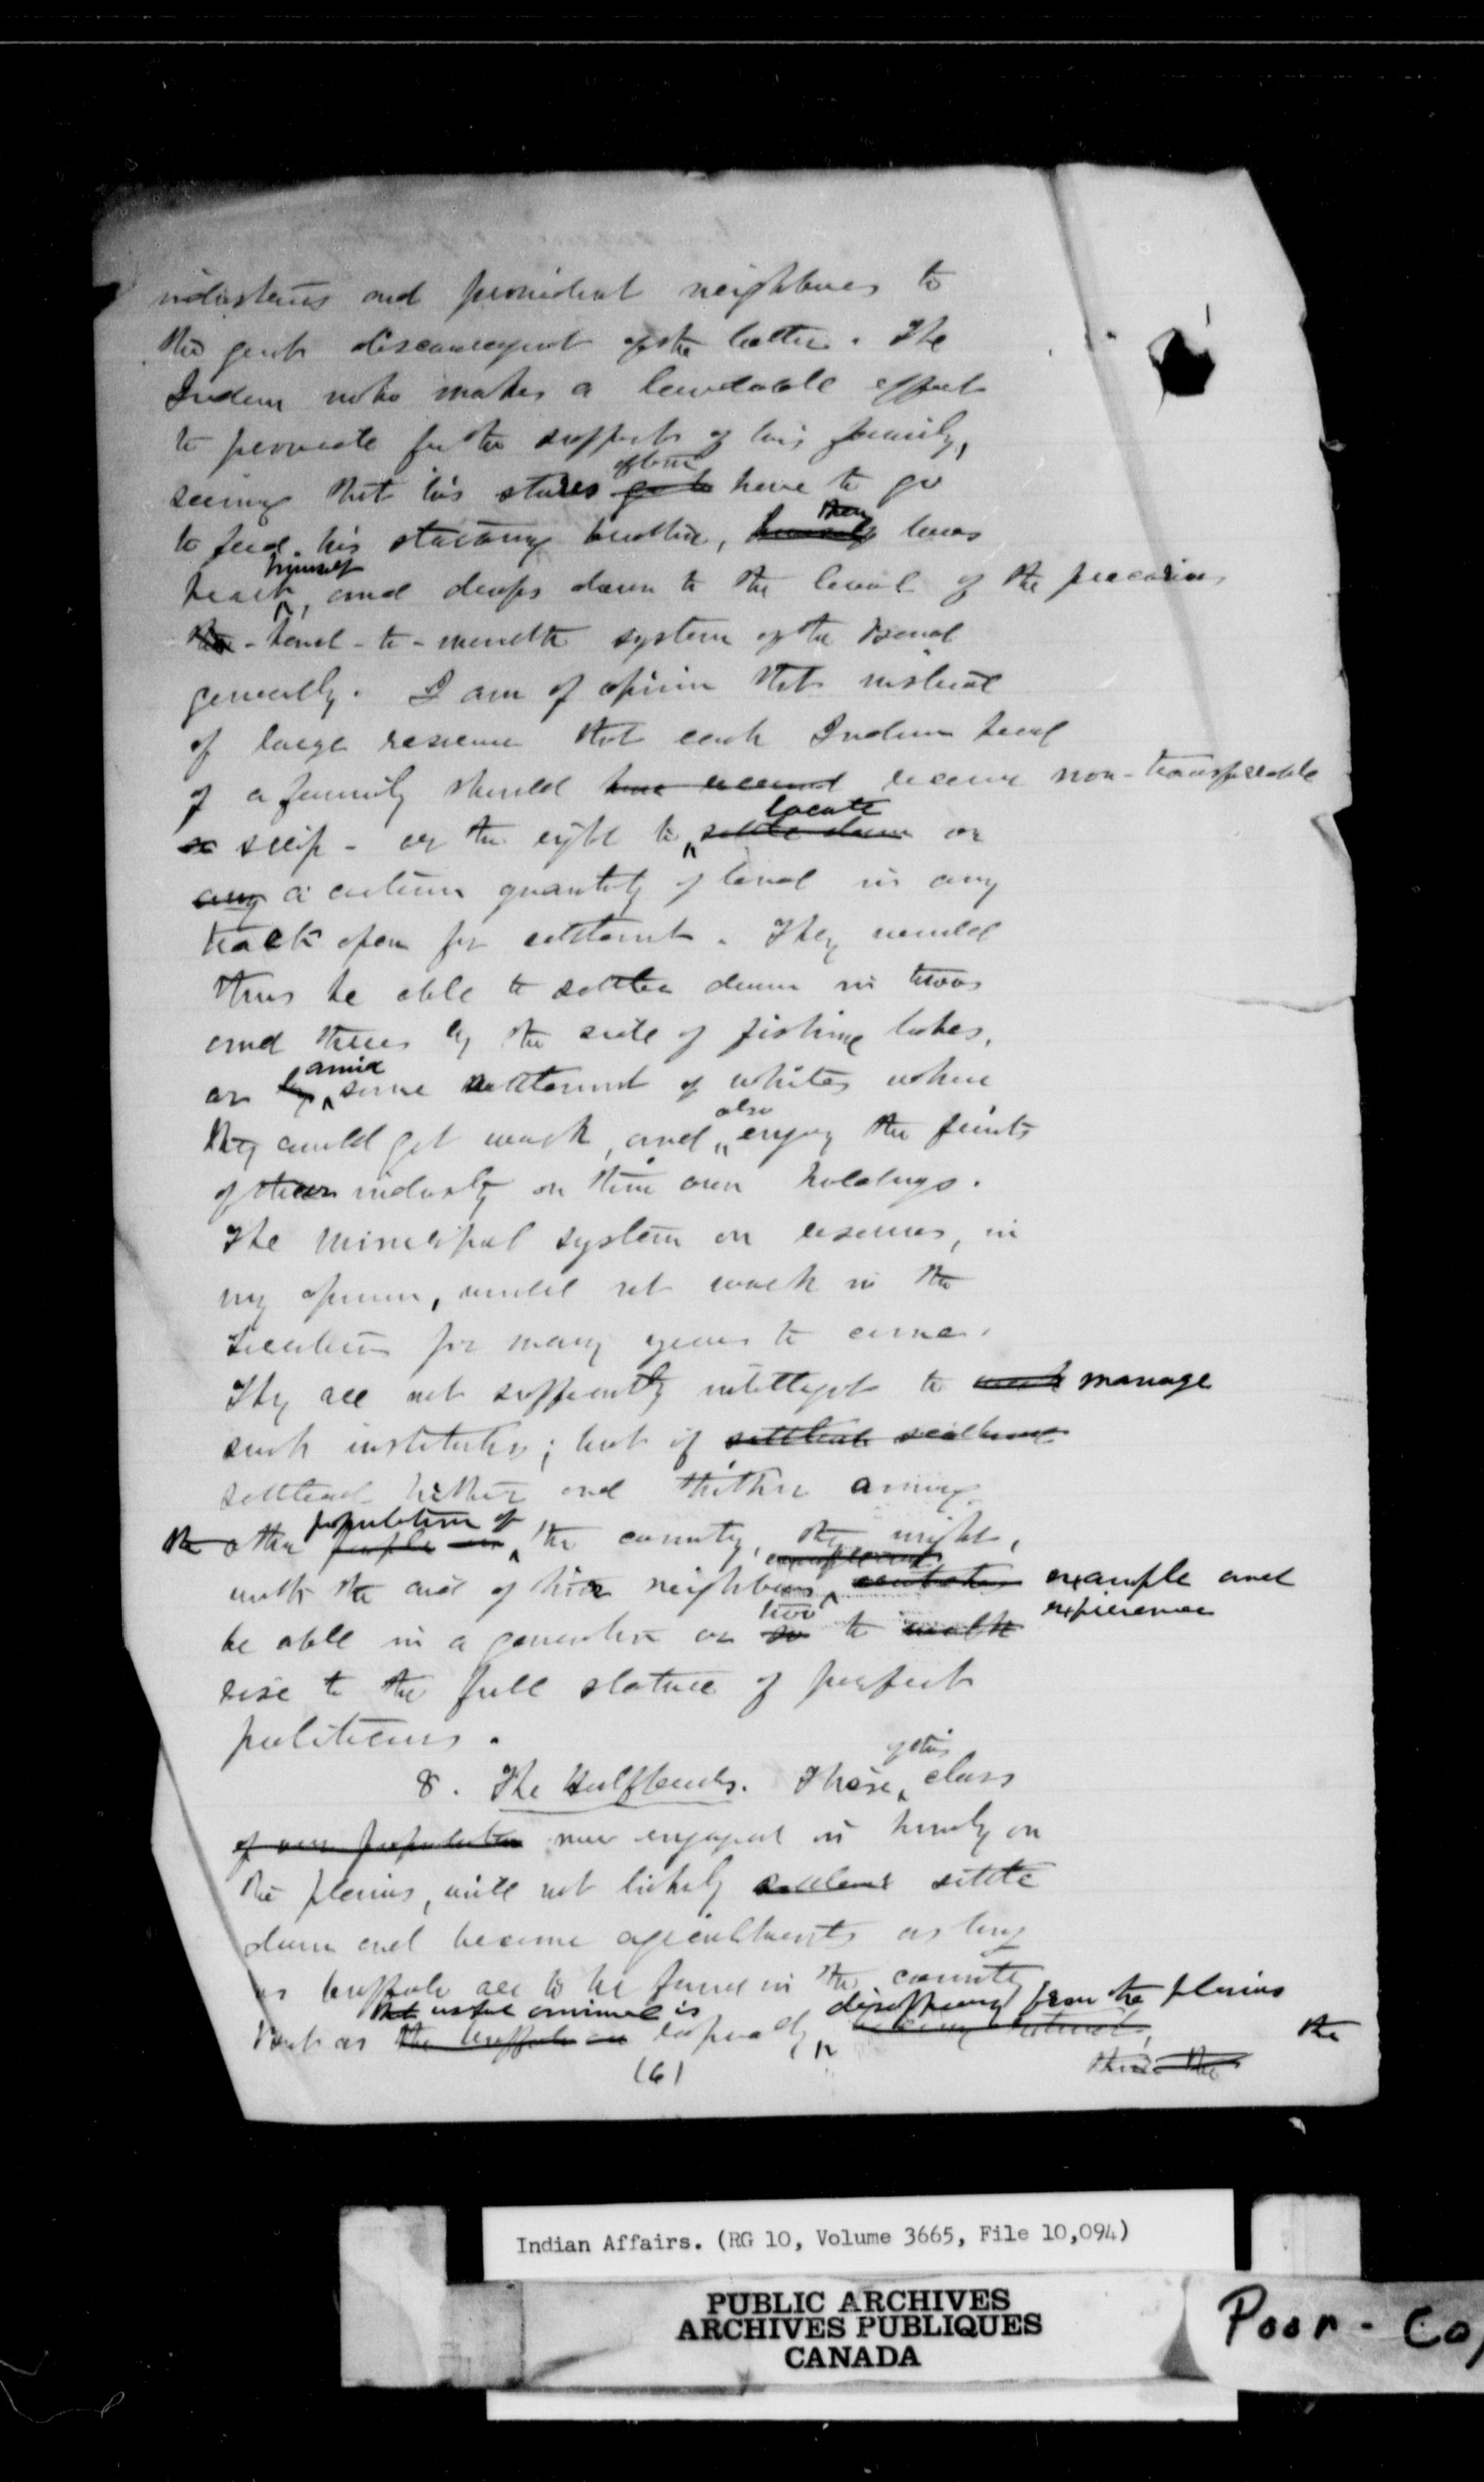 industrious and provident neighbours to
the great discouragement of the latter. The
Indian who makes a laudable effort
to provide for the support of his family,
seeing that his stores often have to go
to feed his starving brother, then loses
heart himself, and drops down to the level of the precarious
hand-to-mouth system of the Band
generally. I am of opinion that instead
of large reserves that each Indian head
of a family should have received receive non-transferable
scrip - or the right to locate settle down on
any a certain quantity of land in any
tract open for settlement. They would
thus be able to settle down in twos
and threes by the side of fishing lakes,
or by amid some settlement of whites where
they could get work, and also enjoy the fruits
of their industry on their own holdings.
The Municipal system on reserves, in
my opinion, would not work in the
for many years to come.
They are not sufficiently intelligent to work manage
such institutions; but if
settled hither and thither among
the other people in population of the country, they might,
with the aid of their neighbours example and experience
be able in a generation or so two to
rise to the full stature of perfect
politicians.
8. The Halfbreeds. Those of this class
of our population now engaged in hunting on
the plains, will not likely settle
down and become agriculturists as long
as buffalo are to be found in the country
But as the buffalo are that useful animal is rapidly disappearing from the plains
the
(6)
Indian Affairs. (RG 10, Volume 3665, File 10,094)
PUBLIC ARCHIVES
ARCHIVES PUBLIQUES
CANADA
Poor - Co